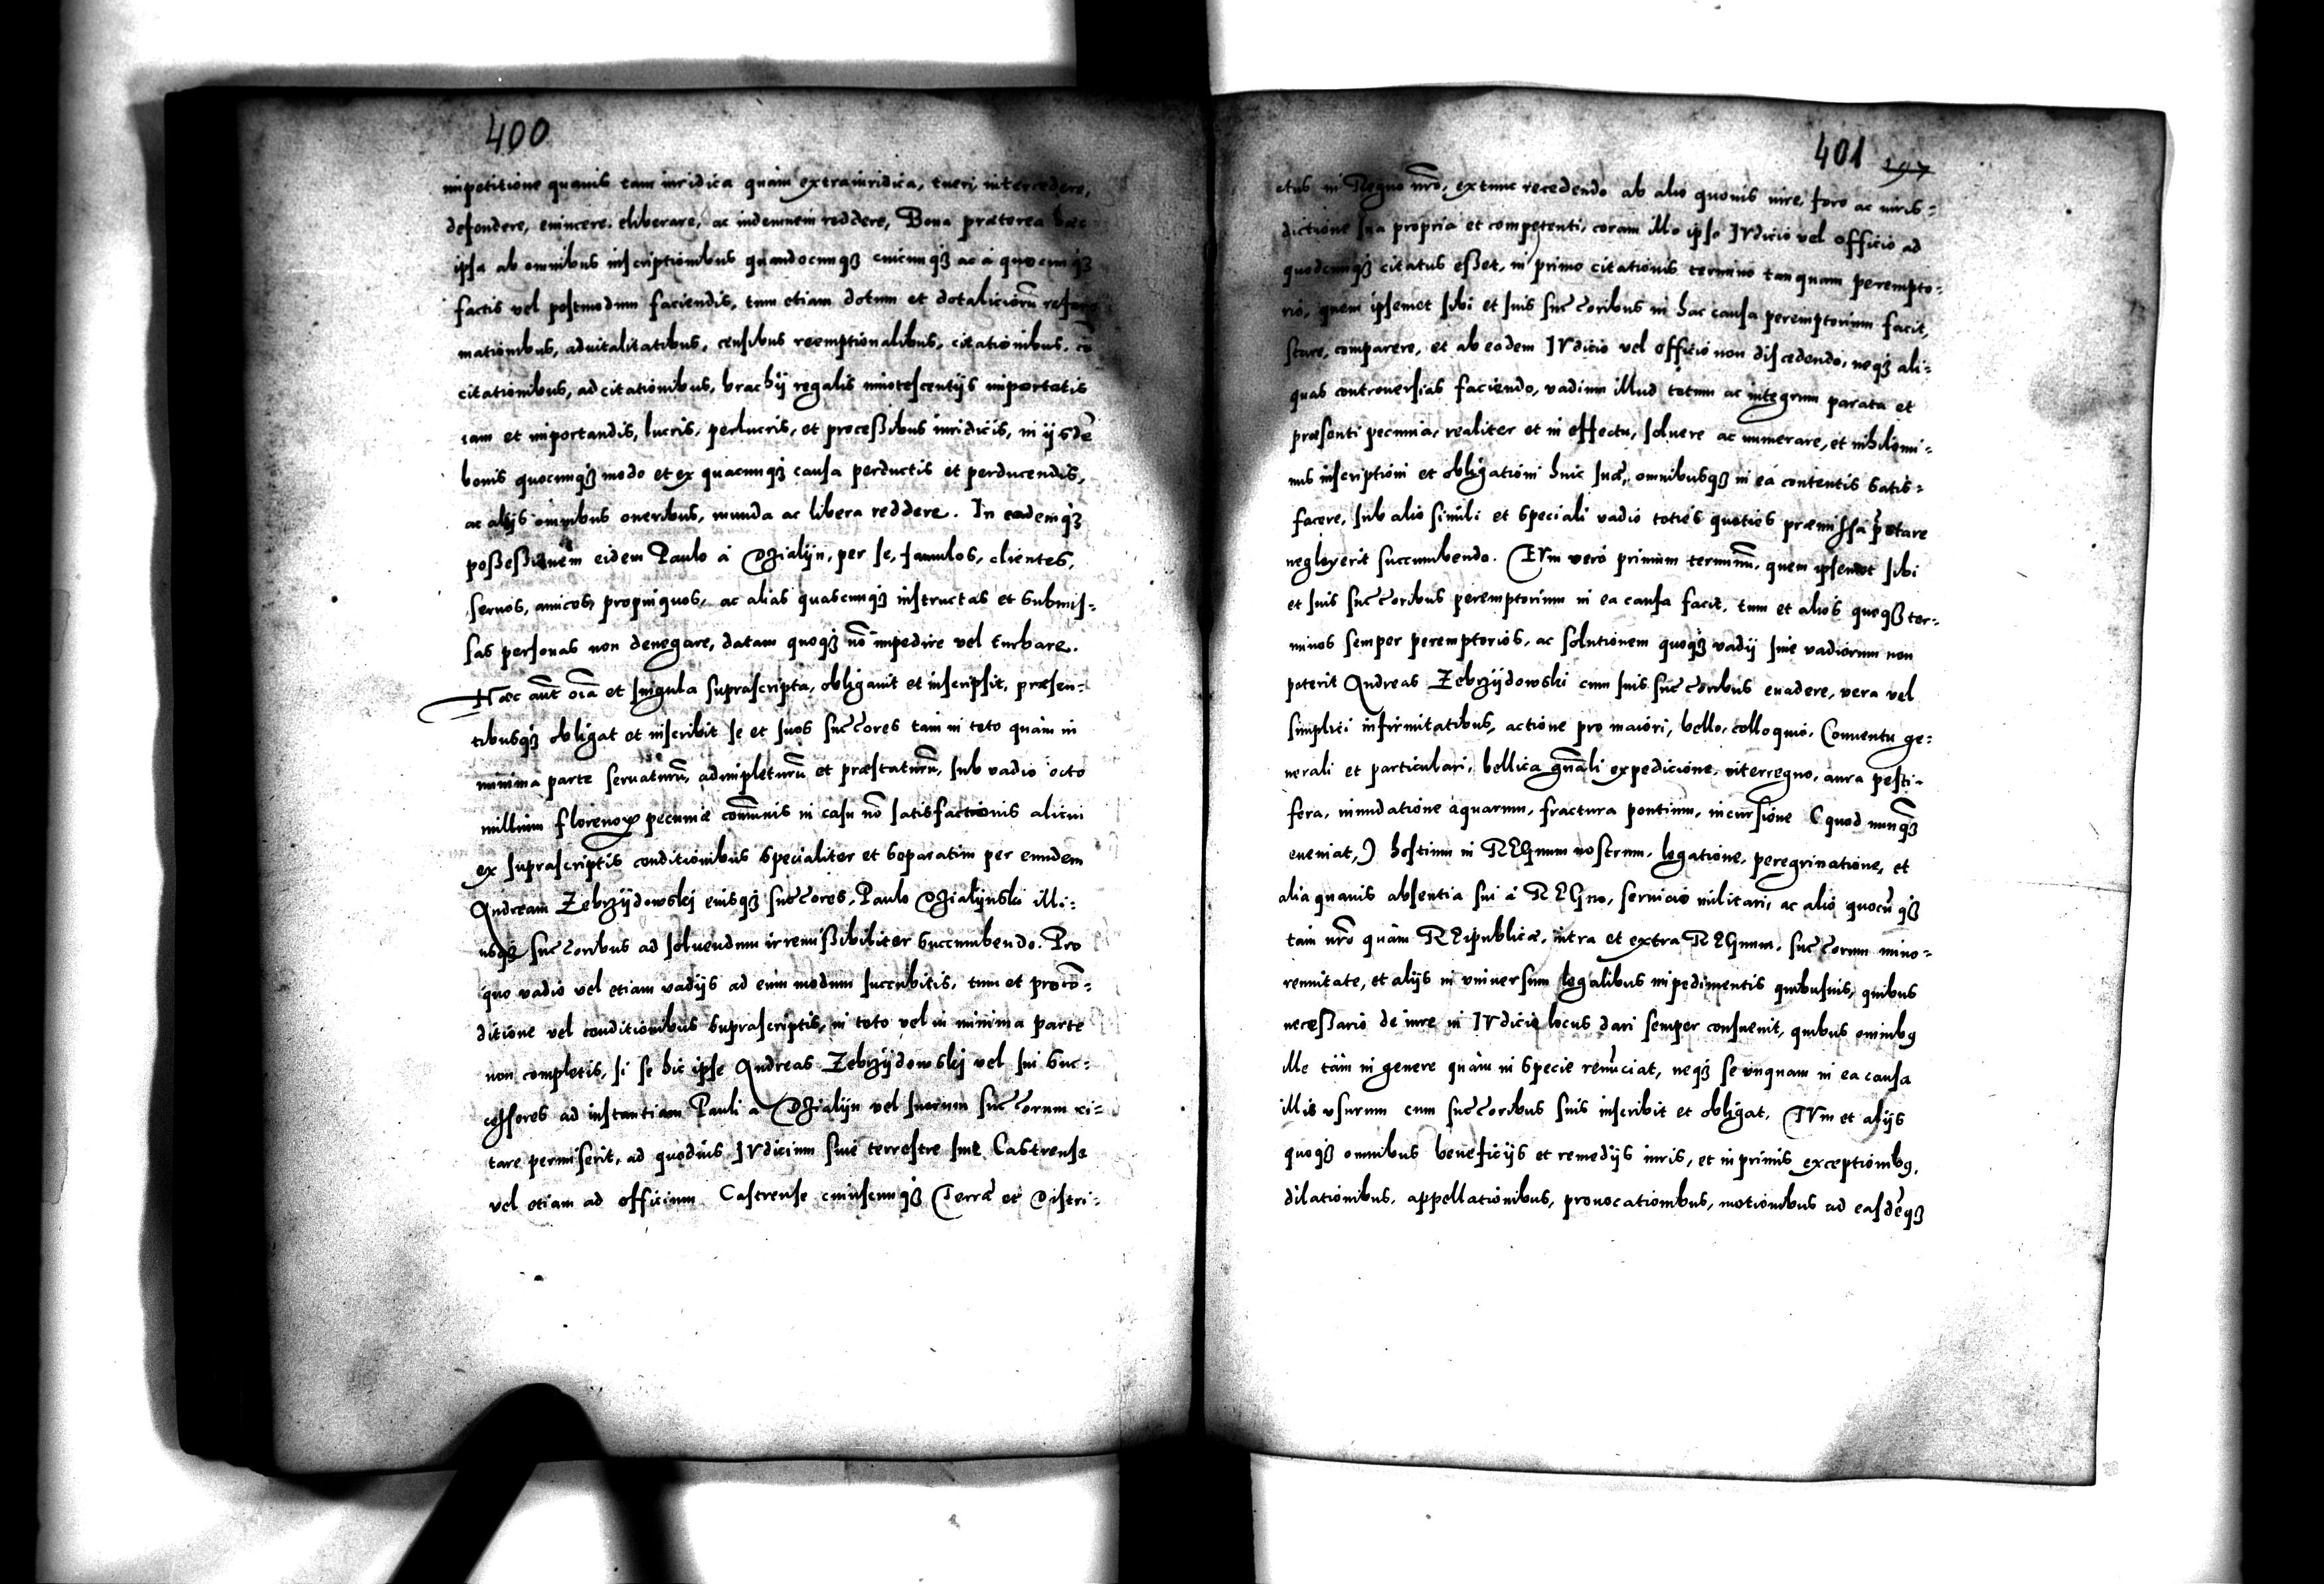 400
impetitione quavis tam iuridica quàm extraiuridica, tueri, intercedere,
defendere, evincere, eliberare, ac indemnem reddere, Bona præterea hæc
ipsa ab omnibus inscriptionibus quandocunqȝ cuicunqȝ ac à quocunqȝ
factis vel postmodum faciendis, tum etiam dotum et dotaliciorũ refor
mationibus, advitalitatibus, censibus reemptionalibus, citationibus, cõ
citationibus, adcitationibus, brachij regalis innotescentijs importatis
iam et importandis, lucris, perlucris, et processibus iuridicis, in ijsdẽ
bonis quocunqȝ modo et ex quacunqȝ causa perductis et perducendis,
ac alijs omnibus oneribus, munda ac libera reddere. In eademqȝ
possessionem eidem Paulo à Dzialijn, per se, famulos, clientes,
servos, amicos, propinquos, ac alias quascunqȝ instructas et submis=
sas personas non denegare, datam quoqȝ nõ impedire vel turbare.
Hæc aũt oĩa et singula suprascripta, obligavit et inscripsit, præsen=
tibusqȝ obligat et inscribit se et suos succores tam in toto quàm in
minima parte servaturũ, adimpleturũ et præstaturũ, sub vadio octo
millium florenoꝝ pecuniæ cõmunis in casu nõ satisfactionis alicui
ex suprascriptis conditionibus specialiter et separatim per eundem
Andream Zebrzijdowskj eiusqȝ succores, Paulo Dzialijnski illi=
usqȝ succoribus ad solvendum irremissibiliter succumbendo. Pro
quo vadio vel etiam vadijs ad eum modum succubitis, tum et pro cõ=
ditione vel conditionibus suprascriptis, in toto vel in minima parte
non completis, si se hic ipse Andreas Zebrzijdowskj vel sui suc=
cessores ad instantiam Pauli a Dzialijn vel suorum succorum ci=
tare permiserit, ad quodvis IVdicium sive terrestre sive Castrense
vel etiam ad officium Castrense cuiuscunqȝ Terræ et Distri=
401 197
ctus in Regno nr̃o, extunc recedendo ab alio quovis iure, foro ac iuris=
dictione sua propria et competenti, coram illo ipso IVdicio vel officio ad
quodcunqȝ citatus esset, in primo citationis termino tanquam perempto=
rio, quem ipsemet sibi et suis succoribus in hac causa peremptorium facit,
stare, comparere, et ab eodem IVdicio vel officio non discedendo, neqȝ ali=
quas controversias faciendo, vadium illud totum ac integrum parata et
præsenti pecunia, realiter et in effectu, solvere ac numerare, et nihilomi=
nus inscriptioni et obligationi huic suæ, omnibusqȝ in ea contentis satis=
facere, sub alio simili et speciali vadio toties quoties præmissa p̃stare
neglexerit succumbendo. TVm verò primum terminũ, quem ipsemet sibi
et suis succoribus peremptorium in ea causa facit, tum et alios quoqȝ ter=
minos semper peremptorios, ac solutionem quoqȝ vadij sive vadiorum non
poterit Andreas Zebrzijdowski cum suis succoribus evadere, vera vel
simplici infirmitatibus, actione pro maiori, bello, colloquio, Conventu ge=
nerali et particulari, bellica gñali expedicione, interregno, aura pesti=
fera, inundatione aquarum, fractura pontium, incursione (quod nunqȝ
eveniat,) hostium in REGnum nostrum, legatione, peregrinatione, et
alia quavis absentia sui à REGno, servicio militari, ac alio quocũqȝ
tam nr̃o quàm REipublicæ, intra et extra REGnum, succorum mino=
rennitate, et alijs in universum legalibus impedimentis quibusvis, quibus
necessario de iure in IVdicio locus dari semper consuevit, quibus omnibꝯ
ille tàm in genere quàm in specie renũciat, neqȝ se unquam in ea causa
illis usurum cum succoribus suis inscribit et obligat. TVm et alijs
quoqȝ omnibus beneficijs et remedijs iuris, et in primis exceptionibꝯ,
dilationibus, appellationibus, provocationibus, motionibus ad easdẽqȝ